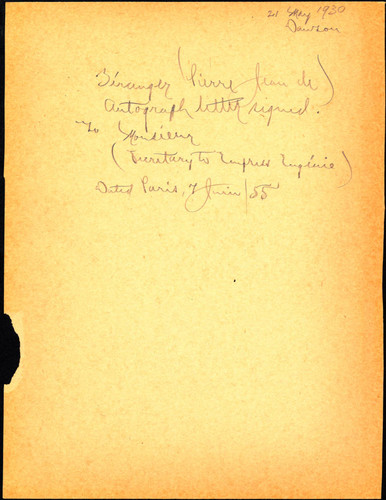 21 May 1930
Dawson
Béranger (Pierre Jean de)
Autograph letter signed.
To Monsieur
(Secretary to Empress Eugénie)
Dated Paris, 7 Juin / 55